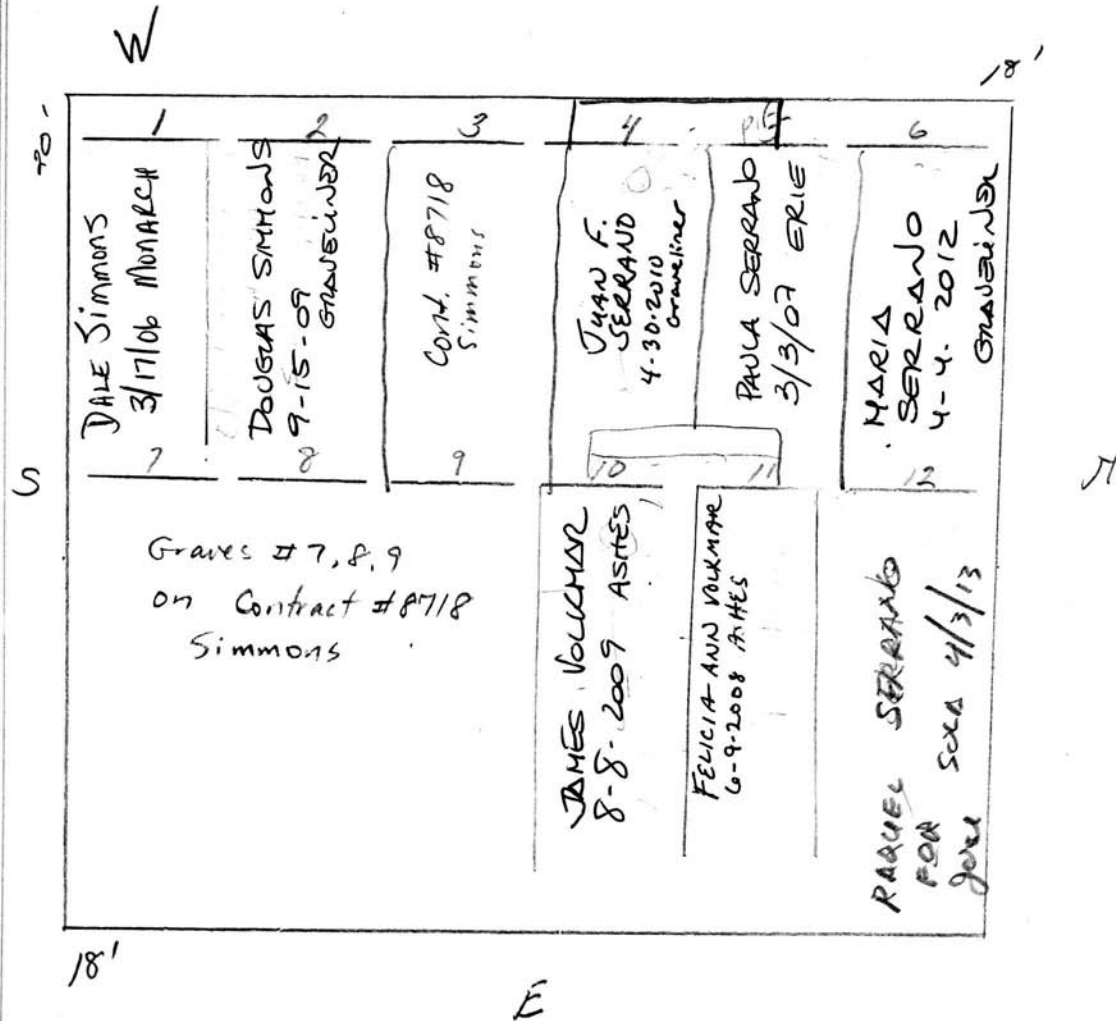 W
18'
20'
1
2
3
4
PIE
6
DALE SIMMONS
3/17/06 MONARCH
DOUGLAS SIMMONS
9-15-09
GRAVELINER
Cont. #8718
Simmons
JUAN F.
SERRANO
4-30-2010
Graveliner
PAULA SERRANO
3/3/07 ERIE
MARIA
SERRANO
4-4-2012
GRAVELINER
S
7
8
9
10
11
12
N
Graves #7,8,9
on Contract #8718
Simmons
JAMES VOLKMAR
8-8-2009 ASHES
FELICIA ANN VOLKMAR
6-9-2008 ASHES
RAQUEL SERRANO
FOR
SOLD 4/3/13
18'
E